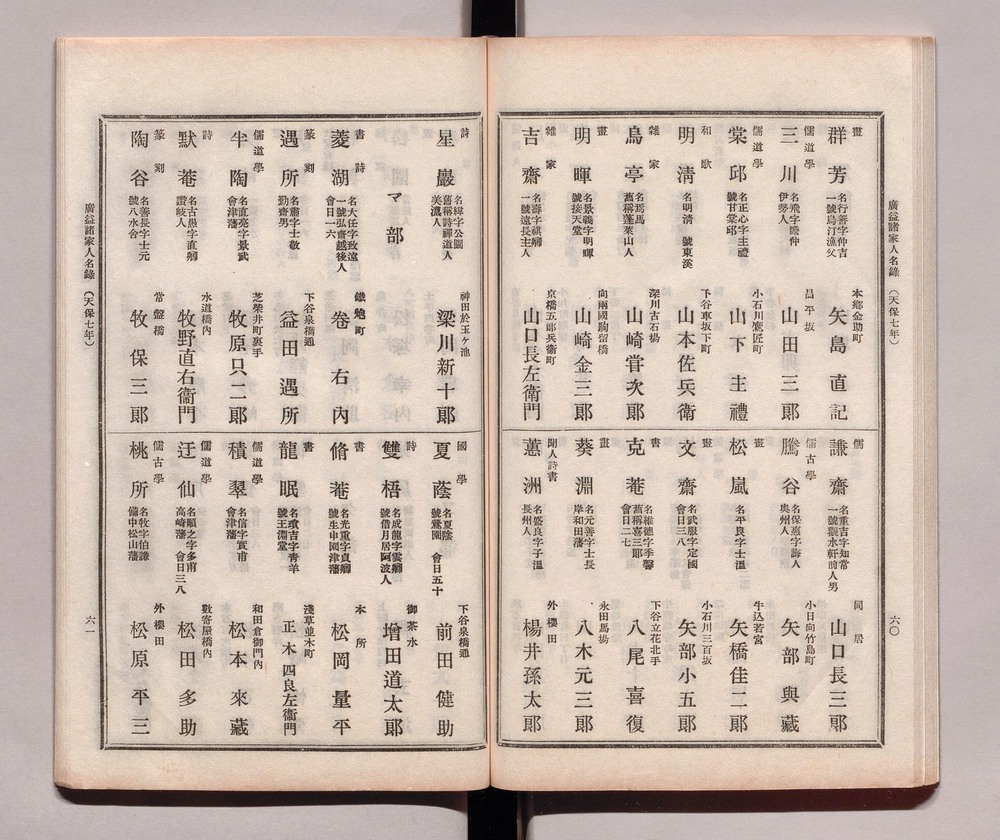 廣益諸家人名錄(天保七年)
畫
群芳
名行善字仲吉
一號烏汀漁父
本鄉金助町
矢島直記
儒道學
三川
名飛字瞻仲
伊勢人
昌平坂
山田三郎
儒道學
棠邱
名正心字主禮
號甘棠邱
小石川鷹匠町
山下主禮
和歌
明清
名明清 號東溪
下谷車坂下町
山本佐兵衛
雜家
鳥亭
名焉馬
舊稱蓬萊山人
深川古石場
山崎甞次郎
畫
明暉
名景義字明暉
號接天堂
向兩國駒留橋
山崎金三郎
雜家
吉齋
名壽字祺卿
一號遠長主人
京橋五郎兵衛町
山口長左衛門
儒
謙齋
名重吉字知常
一號觀水軒前人男
同居
山口長三郎
儒古學
騰谷
名保惠字壽人
奥州人
小日向竹島町
矢部與藏
畫
松嵐
名平良字士溫
牛込若宮
矢橋佳二郎
畫
文齋
名武服字定國
會日三八
小石川三百坂
矢部小五郎
書
克菴
名維德字季馨
舊稱喜三郎
會日二七
下谷立花北手
八尾喜復
畫
葵淵
名元善字士長
岸和田藩
永田馬場
八木元三郎
聞人詩書
蕙洲
名盛良字子溫
長州人
外櫻田
楊井孫太郎
六〇
詩
星巖
名緯字公圖
舊稱詩禪道人
美濃人
神田於玉ヶ池
梁川新十郎
マ部
書詩
菱湖
名大任字致遠
一號弘齋越後人
會日一六
鐵炮町
卷右內
篆刻
遇所
名肅字士敬
勤齋男
下谷泉橋通
益田遇所
儒道學
半陶
名直亮字景武
會津藩
芝榮井町裏手
牧原只二郎
詩
默菴
名古愚字直卿
讚岐人
水道橋內
牧野直右衞門
篆刻
陶谷
名善長字士元
號八水舍
常盤橋
牧保三郎
國學
夏蔭
名夏蔭
號鶯園 會日五十
下谷泉橋通
前田健助
詩
雙梧
名成龍字雲卿
號借月居阿波人
御茶水
增田道太郎
書
脩菴
名光重字貞卿
號生申園津藩
本所
松岡量平
書
龍眠
名瓚吉字青羊
號王淵堂
淺草並木町
正木四良左衞門
儒道學
積翠
名信字實甫
會津藩
和田倉御門內
松本來藏
儒道學
迂仙
名順之字多甫
高崎藩 會日三八
數寄屋橋內
松田多助
儒古學
桃所
名牧字伯謙
備中松山藩
外櫻田
松原平三
廣益諸家人名錄(天保七年)
六一